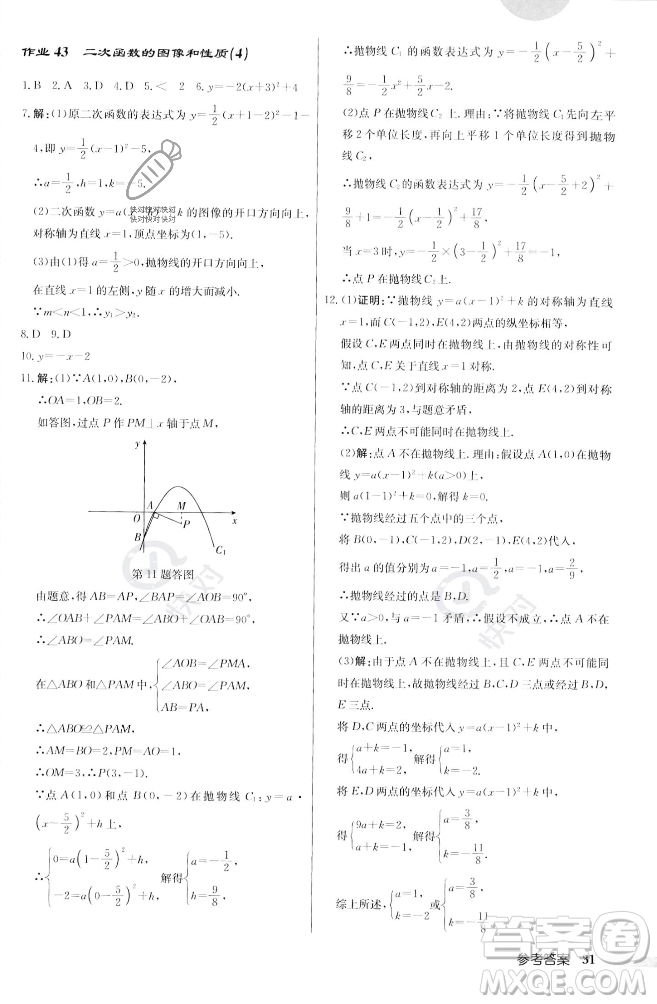 作业 43　二次函数的图像和性质(4)
1.B　2.A　3.D　4.D　5.<　2　6.y=-2(x+3)²+4
7.解:(1)原二次函数的表达式为 y=1/2(x+1-2)²-1-
4,即 y=1/2(x-1)²-5,
∴a=1/2,h=1,k=-5.
(2)二次函数 y=a(　k 的图像的开口方向向上,
对称轴为直线 x=1,顶点坐标为(1,-5).
(3)由(1)得 a=1/2>0,抛物线的开口方向向上,
在直线 x=1 右侧,y 随 x 的增大而增大.
∵m<n<1,∴y₁>y₂.
8.D　9.D
10.y=-x-2
11.解:(1)∵A(1,0),B(0,-2),
∴OA=1,OB=2.
如答图,过点 P 作 PM⊥x 轴于点 M,
y
A
M
O
x
P
B
C₁
第 11 题答图
由题意,得 AB=AP,∠BAP=∠OAM=90°,
∴∠OAB+∠OAP=∠PAM+∠OAP=90°,
∴∠OAB=∠PAM.
在△ABO 和△APM 中,{∠AOB=∠PMA, ∠OAB=∠PAM, AB=AP,
∴△ABO≌△APM,
∴AM=AO=1,PM=BO=2,
∴P(2,-1).
∵点 A(1,0)和点 B(0,-2)在抛物线 C₁:y=a·
(x-5/2)²+h 上,
∴{0=a(1-5/2)²+h, -2=a(0-5/2)²+h, 解得{a=-1/2, h=9/8,
∴抛物线 C₁ 的函数表达式为 y=-1/2(x-5/2)²+
9/8=-1/2x²+5/2x-2.
(2)点 P 在抛物线 C₂ 上.理由:∵将抛物线 C₁ 先向左平
移 2 个单位长度,再向上平移 1 个单位长度,得到抛物
线 C₂,
∴抛物线 C₂ 的函数表达式为 y=-1/2(x-5/2+2)²+
9/8+1=-1/2(x-1/2)²+17/8.
当 x=3 时,y=-1/2×(3-1/2)²+17/8=-1,
∴点 P 在抛物线 C₂ 上.
12.(1)证明:∵抛物线 y=a(x-1)²+k 的对称轴为直线
x=1,而 C(-1,2),E(4,2)两点的纵坐标相等,假设
C,E 两点同时在抛物线上,由抛物线的对称性可
知,点 C,E 关于直线 x=1 对称.
∵点 C(-1,2)与对称轴的距离为 2,点 E(4,2)与对
称轴的距离为 3,与题意矛盾,
∴C,E 两点不可能同时在抛物线上.
(2)解:点 A 不在抛物线上.理由:假设点 A 在抛物
线 y=a(x-1)²+k(a>0)上,
则 a(1-1)²+k=0,解得 k=0.
∵抛物线经过五个点中的三个点,
将 B(0,-1),C(-1,2),D(2,-1),E(4,2)代入,
得出 a 的值分别为 a=-1,a=1/2,a=-1,a=2/9,
∴抛物线经过的点是 B,D.
又∵a>0,与 a=-1 矛盾,∴假设不成立,∴点 A 不在
抛物线上.
(3)解:由于点 A 不在抛物线上,C,E 两点不可能同时
在抛物线上,故抛物线经过 B,C,D 三点或 B,D,
E 三点.
将 D,C 两点的坐标代入 y=a(x-1)²+k(a>0)中,
得{a+k=-1, 4a+k=2, 解得{a=1, k=-2.
将 E,D 两点的坐标代入 y=a(x-1)²+k(a>0)中,
得{9a+k=2, a+k=-1, 解得{a=3/8, k=-11/8.
综上所述,{a=1, k=-2 或{a=3/8, k=-11/8.
参考答案　31